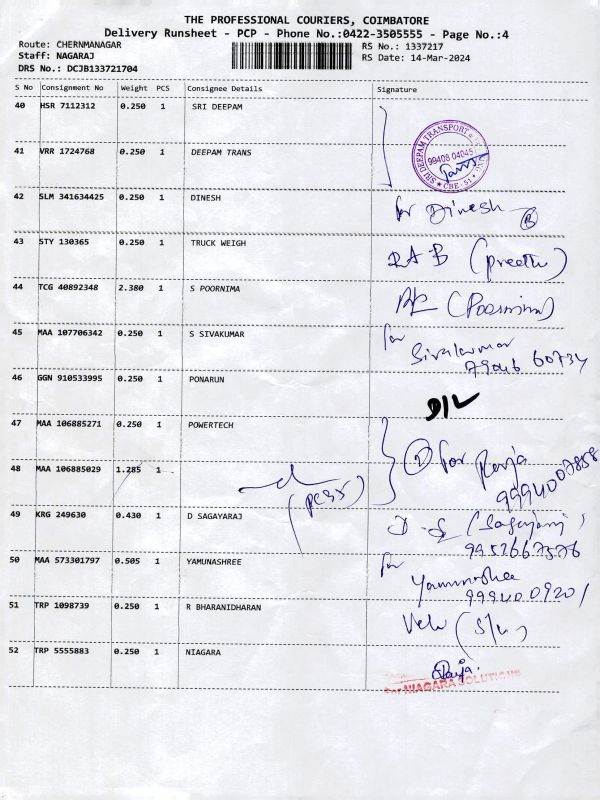 THE PROFESSIONAL COURIERS, COIMBATORE
Delivery Runsheet - PCP - Phone No.:0422-3505555 - Page No.:4
Route: CHERNMANAGAR RS No.: 1337217
Staff: NAGARAJ RS Date: 14-Mar-2024
DRS No.: DCJB133721704
S No Consignment No Weight PCS Consignee Details Signature
40 HSR 7112312 0.250 1 SRI DEEPAM
SRI DEEPAM TRANSPORT
99408 04045
CBE. 51
41 VRR 1724768 0.250 1 DEEPAM TRANS
42 SLM 341634425 0.250 1 DINESH for Dinesh
43 STY 130365 0.250 1 TRUCK WEIGH RAB (preethi)
44 TCG 40892348 2.380 1 S POORNIMA (Poornima)
45 MAA 107706342 0.250 1 S SIVAKUMAR for Sivakumar
79046 60734
46 GGN 910533995 0.250 1 PONARUN D/L
47 MAA 106885271 0.250 1 POWERTECH for Raja
9994007858
48 MAA 106885029 1.285 1
49 KRG 249630 0.430 1 D SAGAYARAJ
9952667576
50 MAA 573301797 0.505 1 YAMUNASHREE for Yamunashree
9994009201
51 TRP 1098739 0.250 1 R BHARANIDHARAN Velu
52 TRP 5555883 0.250 1 NIAGARA
For NIAGARA SOLUTIONS